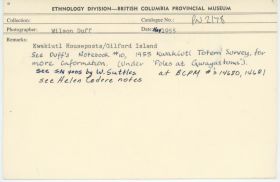 ETHNOLOGY DIVISION—BRITISH COLUMBIA PROVINCIAL MUSEUM
Collection: Catalogue No.: PN 2178
Photographer: Wilson Duff Date: 1955
Remarks:
Kwakiutl Houseposts/Gilford Island
See Duff's Notebook #10, 1955 Kwakiutl Totem Survey, for
more information. (Under 'Poles at Gwayastums').
see by W. Suttles at BCPM #'s 14680, 14681
see Helen Codere notes